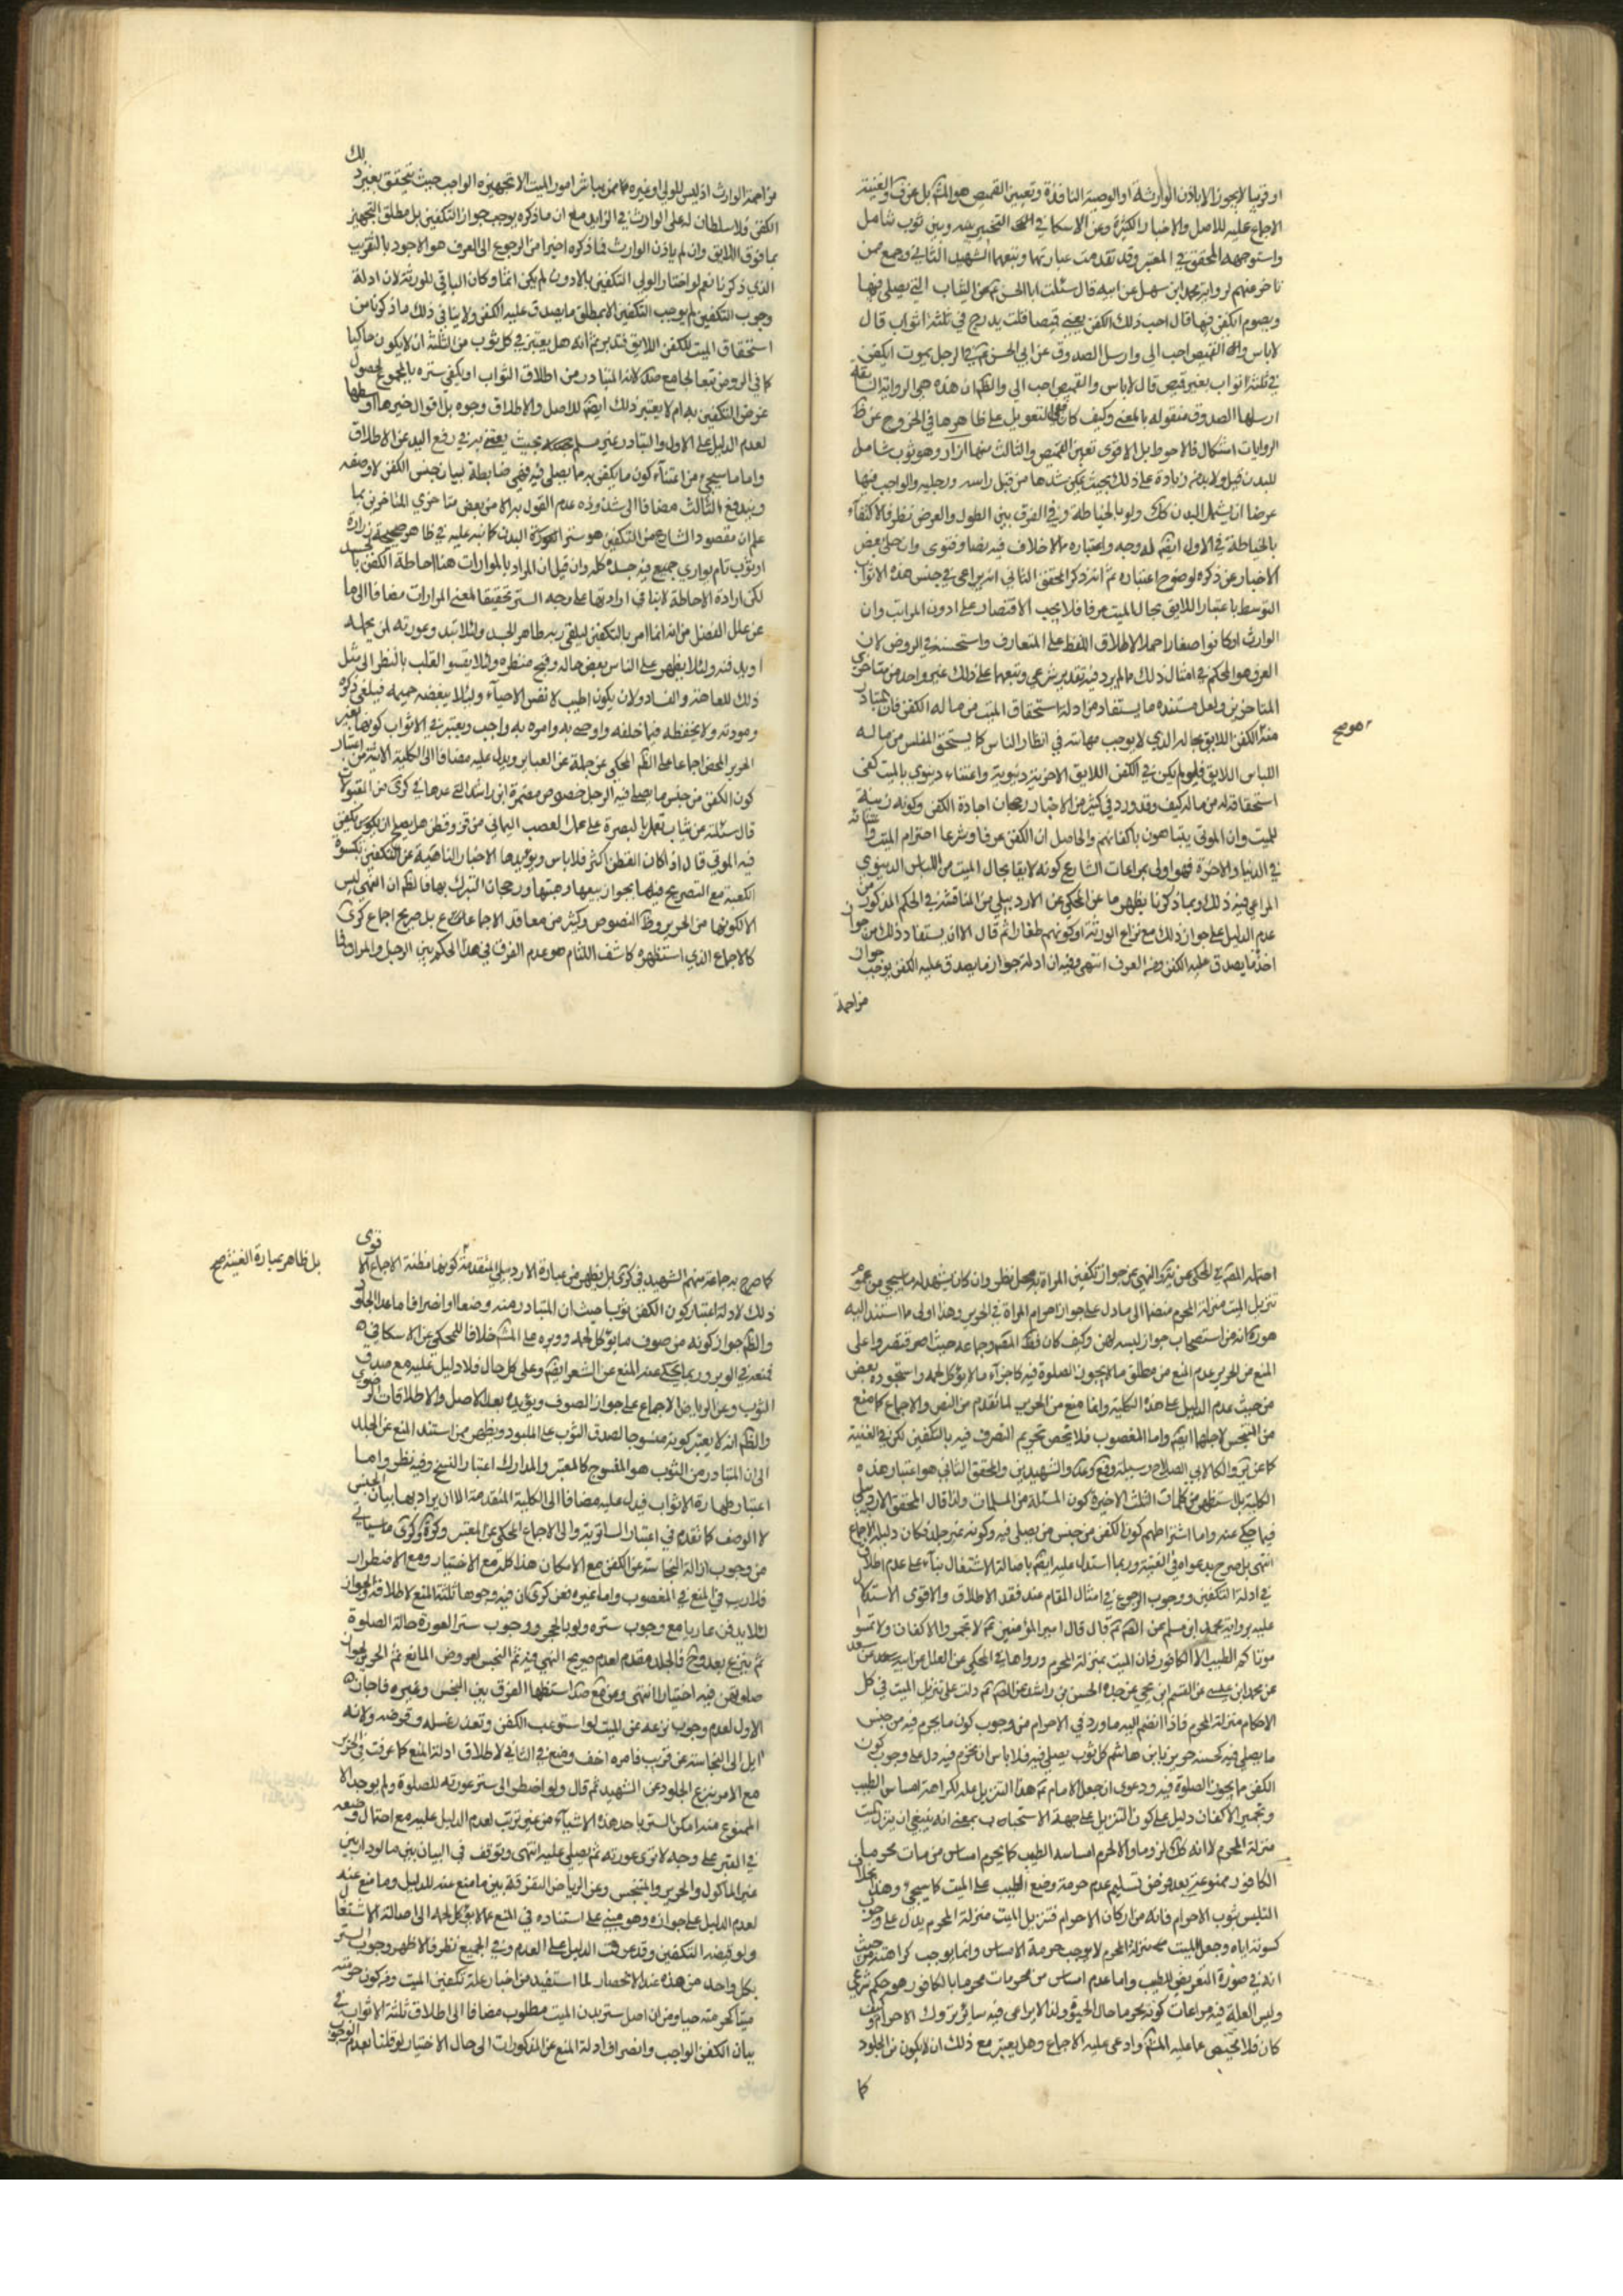 او قريبا لايجوز الا باذن الوارثة او الوصية النافذة وتعيين القميص هو المش بل عن ف والغنية
الاجماع عليه للاصل والاخبار الكثيرة وعن الاسكافي التخيير بينه وبين ثوب شامل
واستوجهه المحقق في المعتبر وقد تقدمت عبارتها وتبعهما الشهيد الثاني وجمع ممن
تاخر منهم لرواية محمد ابن سهل عن ابيه قال سئلت ابا الحسن عن الثياب التي يصلي فيها
ويصوم ايكفن فيها قال احب ذلك الكفن يعني قميصا قلت يدرج في ثلثة اثواب قال
لاباس والقميص احب الي وارسل الصدوق عن ابي الحسن في الرجل يموت ايكفن
في ثلثة اثواب بغير قميص قال لاباس والقميص احب الي والظ ان هذه هي الرواية السابقة
ارسلها الصدوق منقوله بالمعنى وكيف كان ففي التعويل على ظاهرها في الخروج عن ظ
الروايات اشكال فالاحوط بل الاقوى تعين القميص والثالث منها ازار وهو ثوب شامل
للبدن قيل ولابد من زيادة على ذلك بحيث يمكن شدها من قبل راسه ورجليه والواجب فيها
عرضا ان يشمل البدن كك ولو بالخياطة وفي الفرق بين الطول والعرض نظر فالاكتفاء
بالخياطة في الاول ايض له وجه واعتباره مما لاخلاف فيه نصا وفتوى وان خلى بعض
الاخبار عن ذكره لوضوح اعتباره ثم انه ذكر المحقق الثاني انه يراعى في جنس هذه الاثواب
التوسط باعتبار اللايق بحال الميت عرفا فلا يجب الاقتصار على ادون المراتب وان
الوارث او كانوا صغارا حملا لاطلاق اللفظ على المتعارف واستحسنه في الروض لان
العرف هو المحكم في امثال ذلك مما لم يرد فيه تقدير شرعي وتبعهما على ذلك غير واحد من متاخري
المتاخرين ولعل مستنده ما يستفاد من ادلة استحقاق الميت من ماله الكفن فان المتبادر
منه الكفن اللايق بحاله الذي لا يوجب مهانته في انظار الناس كما يستحق المفلس من ماله
اللباس اللايق فلو لم يكن في الكفن اللايق الا حزية دنيوية واعتناء دنيوي بالميت كفى
استحقاقه له من ماله كيف وقد ورد في كثير من الاخبار رجحان اجادة الكفن وكونه زينة
للميت وان الموتى يتباهون باكفانهم والحاصل ان الكفن عرفا وشرعا احترام الميت
في الدنيا والاخرة فهو اولى بمراعات الشارع كونه لايقا بحال الميت من اللباس الدنيوي
المراعى فيه ذلك وبما ذكرنا يظهر ما عن المحكي عن الاردبيلي من المناقشة في الحكم المذكور من
عدم الدليل على جواز ذلك مع نزاع الورثة او كونهم طفارا ثم قال الا ان يستفاد ذلك من جواز
اخذ ما يصدق عليه الكفن في العرف انتهى وفيه ان ادلة جواز ما يصدق عليه الكفن يوجب جواز
مزاحمة
صح
مزاحمة الوارث اذ ليس للولي او غيره ممن يباشر امور الميت الا تجهيزه الواجب حيث تحقق بغير ذلك
الكفن فلا سلطان له على الوارث في الزايد مع ان ما ذكره يوجب جواز التكفين بل مطلق التجهيز
بما فوق اللايق وان لم ياذن الوارث فما ذكره اخيرا من الرجوع الى العرف هو الاجود بالتقريب
الذي ذكرنا نعم لو اختار الولي التكفين بالادون لم يكن اثما وكان الباقي للورثة لان ادلة
وجوب التكفين لم يوجب التكفين الا بمطلق ما يصدق عليه الكفن ولا ينافي ذلك ما ذكرنا من
استحقاق الميت للكفن اللايق فتدبر ثم انه هل يعتبر في كل ثوب من الثلثة ان لايكون حاكيا
كما في الروض تبعا لجامع صد لانه المتبادر من اطلاق الثواب او يكفي ستره بالمجموع لحصول
غرض التكفين به ام لا يعتبر ذلك ايض للاصل والاطلاق وجوه بل اقوال خيرها اوسطها
لعدم الدليل على الاول والتبادر غير مسلم بحيث يعتنى به في رفع اليد عن الاطلاق
واما ما سيجيئ من اعتناء كون ما يكفن به ما يصلى فيه فهي ضابطة لبيان جنس الكفن لا وصفه
ويندفع الثالث مضافا الى شذوذه عدم القول به الا من بعض متاخري المتاخرين بما
علم ان مقصود الشارع من التكفين هو ستر البدن كما نبه عليه في ظاهر صحيحة زرارة
او ثوب تام يواري جميع فيه جسده كله وان قيل ان المراد بالموارات هنا احاطة الكفن بالجسد
لكن ارادة الاحاطة لاينافي ارادتها على وجه الستر تحقيقا لمعنى المواراة مضافا الى ما
عن علل الفضل من انه انما امر بالتكفين ليلقى ربه طاهر الجسد ولئلا تبد وعورته لمن يحمله
او يدفنه ولئلا يظهر على الناس بعض حاله وقبح منظره ولئلا يقسو القلب بالنظر الى مثل
ذلك للعاهة والفساد ولان يكون اطيب لانفس الاحياء ولئلا يبغضه حميمه فيلغى ذكره
ومودته ولا يحفظه فيما خلفه واوصى به وامره به واجب ويعتبر في الاثواب كونها بغير
الحرير المحض اجماعا على الظ المحكي عن جملة عن العباير ويدل عليه مضافا الى الكلية الاتية من اعتبار
كون الكفن من جنس ما يصلي فيه الرجل خصوص مضمرة ابن راشد التي عدها في كرى من المقبولات
قال سئلته عن ثياب تعمل بالبصرة على عمل العصب اليماني من قز وقطن هل يصلح ان يكون يكفن
فيه الموتى قال اذا كان القطن اكثر فلاباس ويؤيدها الاخبار الناهية عن التكفين بكسوة
الكعبة مع التصريح فيها بجواز بيعها وهبتها ورجحان التبرك بها فالظ ان النهي ليس
الا لكونها من الحرير وظ النصوص وكثير من معاقد الاجماعات بل صريح اجماع كرى
كالاجماع الذي استظهره كاشف اللثام هو عدم الفرق في هذا الحكم بين الرجل والمراة وفا
احتمله المص في المحكي عن ية والنهي عن جواز تكفين المراة به محل نظر وان كان يشهد له ما سيجي من عموم
تنزيل الميت منزلة المحرم منضما الى مادل على جواز احرام المراة في الحرير وهذا اولى مما استند اليه
هو من استصحاب جواز لبسه لهن وكيف كان فظ المص وجماعة حيث اقتصروا على
المنع من الحرير عدم المنع من مطلق ما لايجوز الصلوة فيه كاجزاء ما لايؤكل لحمه واستجوده بعض
من حيث عدم الدليل على هذه الكلية وانما منع من الحرير لما تقدم من النص والاجماع كما منع
من النجس لاجلها ايض واما المغصوب فلا يخص تحريم التصرف فيه بالتكفين لكن في الغنية
كما عن ير والكافي لابي الصلاح وسيلة ونافع وعد والشهيدين والمحقق الثاني هو اعتبار هذه
الكلية بل يستظهر من كلمات الثلث الاخيرة كون المسئلة من المسلمات ولذا قال المحقق الاردبيلي
فيما حكي عنه واما اشتراطهم كون الكفن من جنس من يصلي فيه وكونه غير جلد فكان دليله الاجماع
انتهى بل صرح بدعواه في الغنية وربما استدل عليه ايض باصالة الاشتغال بناء على عدم اطلاق
في ادلة التكفين ووجوب الرجوع في امثال المقام عند فقد الاطلاق والاقوى الاستدلال
عليه برواية محمد ابن مسلم عن الص قال قال امير المؤمنين لا تجمروا الاكفان ولا تمسو
موتاكم الطيب الا الكافور فان الميت بمنزلة المحرم ورواها في المحكي عن العلل عن ابيه سعد
عن محمد ابن عيسى عن القسم ابن يحيى عن جده الحسن بن راشد عن الص دلت على تنزيل الميت في كل
الاحكام منزلة المحرم فاذا انضم اليه ما ورد في الاحرام من وجوب كون ما يحرم فيه من جنس
ما يصلي فيه كحسنة حريز يا ابن هاشم كل ثوب يصلي فيه فلاباس ان تحرم فيه دل على وجوب كون
الكفن ما يجوز الصلوة فيه ودعوى ان جعل الامام هذا التنزيل علة لكراهة امساس الطيب
وتجمير الاكفان دليل على كون التنزيل على جهة الاستحباب بمعنى انه ينبغي ان ينزل الميت
منزلة المحرم لا انه كك لزوما والا لحرم امساسه الطيب كما يحرم امساس من مات محرما
الكافور ممنوعة بعد فرض تسليم عدم حرمة وضع الطيب على الميت كما سيجيء وهذا بخلاف
التلبس بثوب الاحرام فانه من اركان الاحرام فتنزيل الميت منزلة المحرم يدل على وجوب
كسوته اياه وجعل الميت بمنزلة المحرم لا يوجب حرمة الامساس وانما يوجب كراهته من حيث
انه في صورة التعريض للطيب واما عدم امساس من محرمات محرما بالكافور هو حكم شرعي
وليس العلة فيه مراعات كونه محرما حال الحيوة ولذا لا يراعى فيه ساير تروك الاحرام وكيف
كان فلا محيص عما عليه المش وادعى عليه الاجماع وهل يعتبر مع ذلك ان لايكون من الجلود
كما
كما صرح به جماعة منهم الشهيد في كرى بل يظهر من عبارة الاردبيلي المتقدمة كونها مظنة الاجماع الا قوى
بل ظاهر عبارة الغنية صح
ذلك لادلة اعتبار كون الكفن ثوبا حيث ان المتبادر منه وضعا او انصرافا ما عدا الجلود
والظ جواز كونه من صوف ما يؤكل لحمه ووبره على المش خلافا للمحكي عن الاسكافي
فمنعه في الوبر وربما يحكى عنه المنع عن الشعر ايض وعلى كل حال فلا دليل عليه مع صدق
الثوب وعن الرياض الاجماع على جواز الصوف ويؤيده بعد الاصل والاطلاقات
والظ انه لا يعتبر كونه منسوجا لصدق الثوب على الملبود ويظهر ممن استند المنع عن الجلد
الى ان المتبادر من الثوب هو المنسوج كالمعتبر والمدارك اعتبار النسج وفيه نظر واما
اعتبار طهارة الاثواب فيدل عليه مضافا الى الكلية المتقدمة الا ان يراد بها بيان الجنس
لا الوصف كما تقدم في اعتبار الساترية والى الاجماع المحكي عن المعتبر وكرة وكرى ما سياتي
من وجوب ازالة النجاسة عن الكفن مع الامكان هذا كله مع الاختيار ومع الاضطرار
فلا ريب في المنع في المغصوب واما غيره فعن كرى ان فيه وجوها ثلثة المنع لاطلاقه والجواز
لئلا يدفن عاريا مع وجوب ستره ولو بالحجر ووجوب ستر العورة حالة الصلوة
ثم ينزع بعد وح فالجلد مقدم لعدم صريح النهي فيه ثم النجس لعروض المانع ثم الحرير لجواز
صلوتهن فيه اختيارا انتهى وعن مع صد استظهار الفرق بين النجس وغيره فاجاز
الاول لعدم وجوب نزعه عن الميت لو استوعب الكفن وتعذر غسله وقرضه ولانه
ايل الى النجاسة عن قريب فامره اخف ومنع في الثاني لاطلاق ادلة المنع كما عرفت في الحرير
مع الامر بنزع الجلود عن الشهيد ثم قال ولو اضطر الى ستر عورته للصلوة ولم يوجد الا
الممنوع منه امكن الستر باحد هذه الاشياء من غير ترتيب لعدم الدليل عليه مع احتمال وضعه
في القبر على وجه لا ترى عورته ثم يصلى عليه انتهى وتوقف في البيان بين ما لو دار بين
غير الماكول والحرير والمتنجس وعن الرياض التفرقة بين ما منع عنه للدليل وما منع عنه
لعدم الدليل على جوازه وهو مبني على استناده في المنع عما لايؤكل لحمه الى اصالة الاشتغال
ولو قيضة التكفين وقد عرفت الدليل على العدم وفي الجميع نظر فالاظهر وجوب الستر
بكل واحد من هذه عند الانحصار لما استفيد من اخبار علة تكفين الميت ومن كون حرمته
ميتا كحرمته حيا ومن ان اصل ستر بدن الميت مطلوب مضافا الى اطلاق ثلثة الاثواب في
بيان الكفن الواجب وانصراف ادلة المنع عن المذكورات الى حال الاختيار لو قلنا بعدم الوجوب